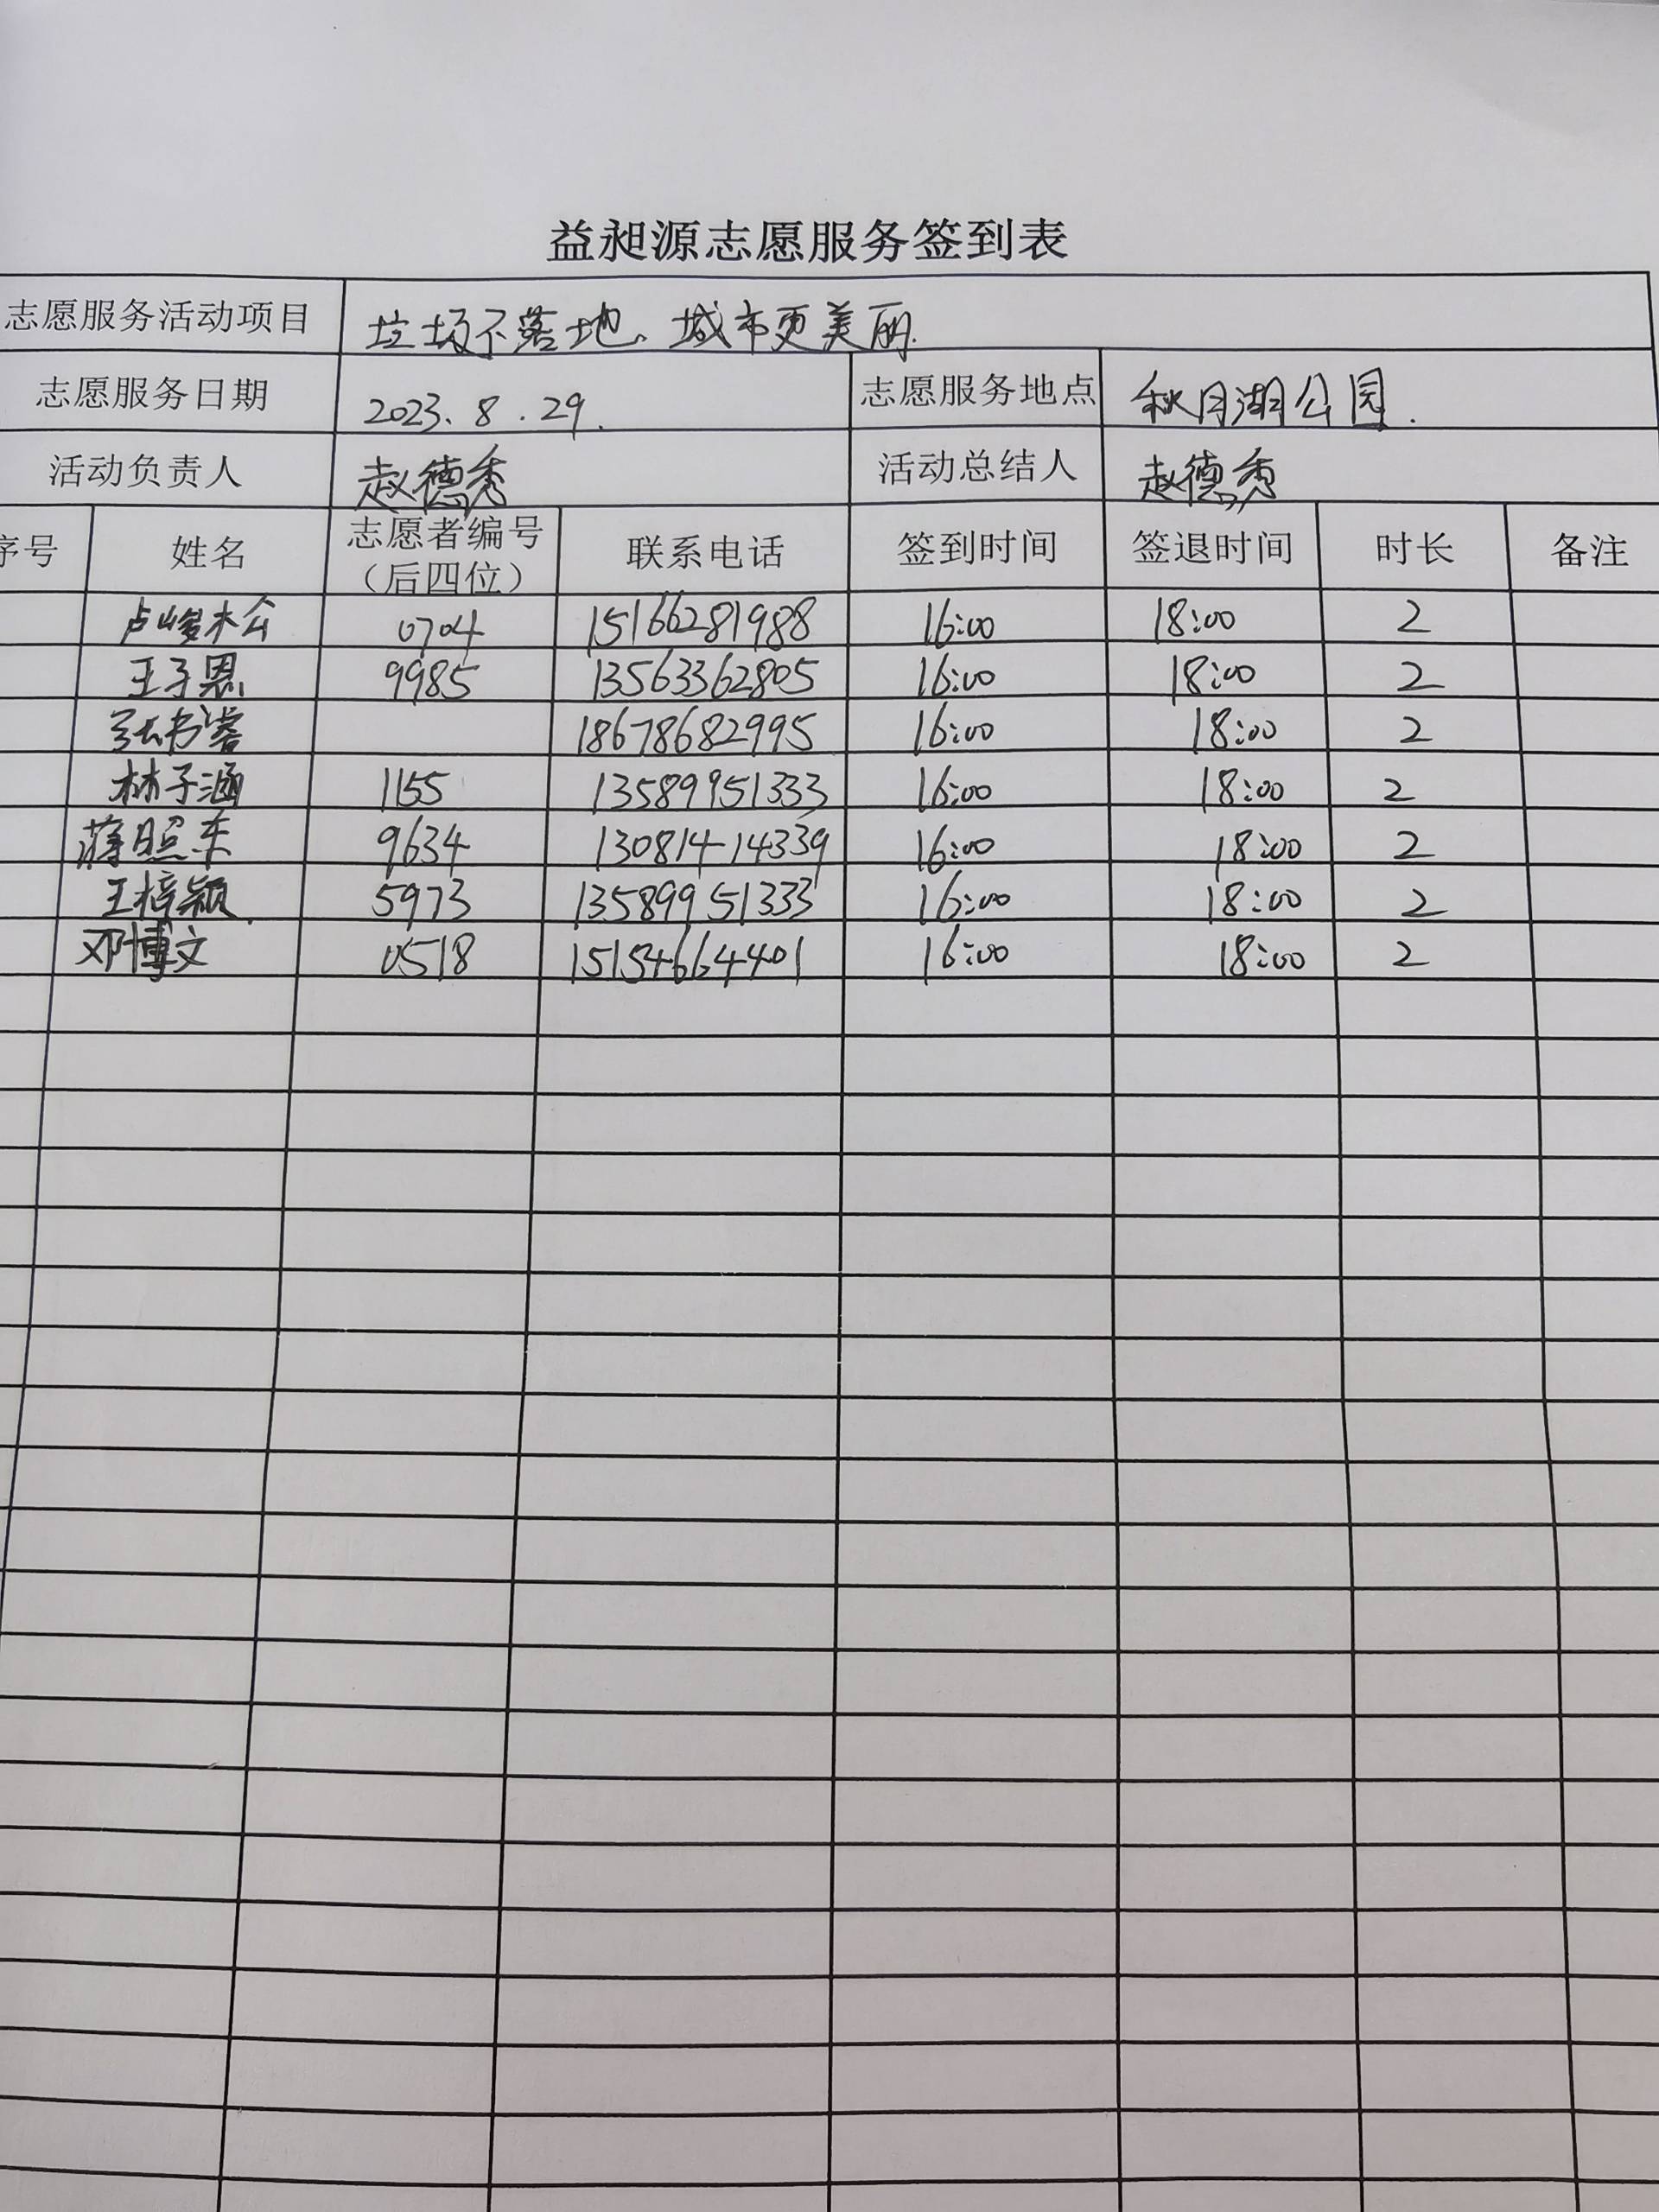 益昶源志愿服务签到表
志愿服务活动项目 垃圾不落地、城市更美丽.
志愿服务日期 2023.8.29. 志愿服务地点 秋月湖公园.
活动负责人 赵德秀 活动总结人 赵德秀
序号 姓名 志愿者编号（后四位） 联系电话 签到时间 签退时间 时长 备注
卢峻松 0704 15166281988 16:00 18:00 2
王子恩 9985 13563362805 16:00 18:00 2
张书 18678682995 16:00 18:00 2
林子涵 1155 13589951333 16:00 18:00 2
薄照东 9634 13081414339 16:00 18:00 2
王梓颖 5973 13589951333 16:00 18:00 2
邓博文 0518 15154664401 16:00 18:00 2